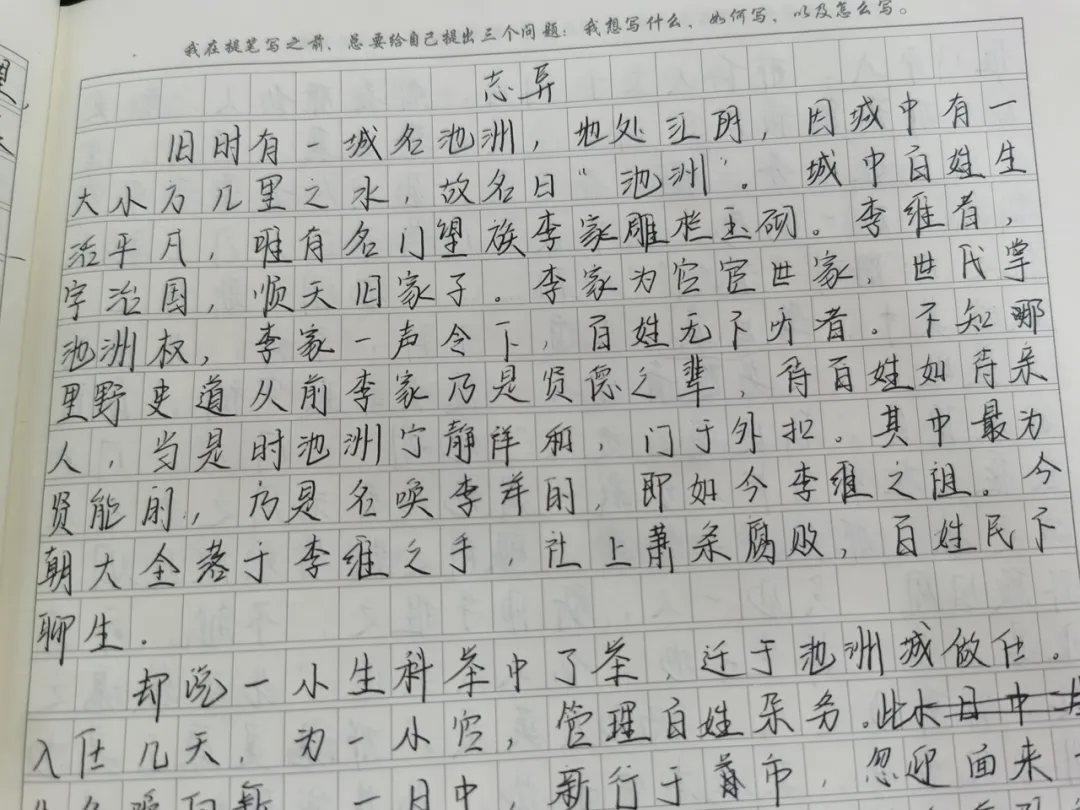 我在提笔写之前，总要给自己提出三个问题：我想写什么、如何写，以及怎么写。
志异
旧时有一城名池洲，地处江阴，因城中有一
大小方几里之水，故名曰“池洲”。城中百姓生
活平凡，唯有名门望族李家雕栏玉砌。李维者，
字治国，顺天旧家子。李家为官宦世家，世代掌
池洲权，李家一声令下，百姓无下方者。下知哪
里野史道从前李家乃是贤德之辈，待百姓如待亲
人，当是时池洲宁静祥和，门于外扣。其中最为
贤能的，乃是名唤李祥的，即如今李维之祖。今
朝大全落于李维之手，社上萧条腐败，百姓民下
聊生．
却说一小生科举中了茶，迁于池洲城做仕。
入仕几天，为一小官，管理百姓杂务．此
一日中，新行于市，忽迎面来